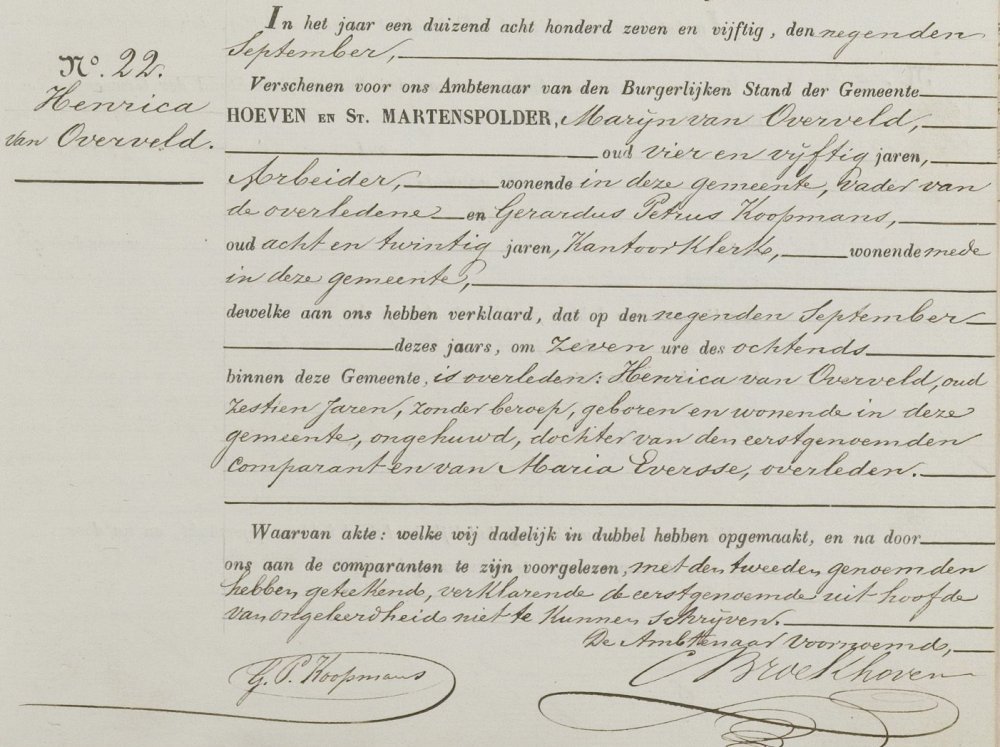 In het jaar een duizend acht honderd zeven en vijftig, den negenden
September,
No. 22.
Henrica
van Overveld.
Verschenen voor ons Ambtenaar van den Burgerlijken Stand der Gemeente
HOEVEN EN St. MARTENSPOLDER, Marijn van Overveld,
oud vier en vijftig jaren,
Arbeider, wonende in deze gemeente, vader van
de overledene en Gerardus Petrus Koopmans,
oud acht en twintig jaren, Kantoor Klerk, wonende mede
in deze gemeente,
dewelke aan ons hebben verklaard, dat op den negenden September
dezes jaars, om zeven ure des ochtends
binnen deze Gemeente, is overleden: Henrica van Overveld, oud
zestien Jaren, zonder beroep, geboren en wonende in deze
gemeente, ongehuwd, dochter van den eerstgenoemden
comparant en van Maria Eversse, overleden.
Waarvan akte: welke wij dadelijk in dubbel hebben opgemaakt, en na door
ons aan de comparanten te zijn voorgelezen, met den tweeden genoemden
hebben geteekend, verklarende de eerstgenoemde uit hoofde
van ongeleerdheid niet te kunnen schrijven.
De Ambtenaar voornoemd,
G. P. Koopmans
C Broekhoven